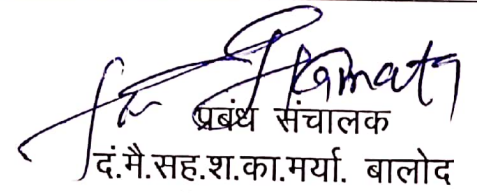 प्रबंध संचालक
दं.मै.सह.श.का.मर्या. बालोद